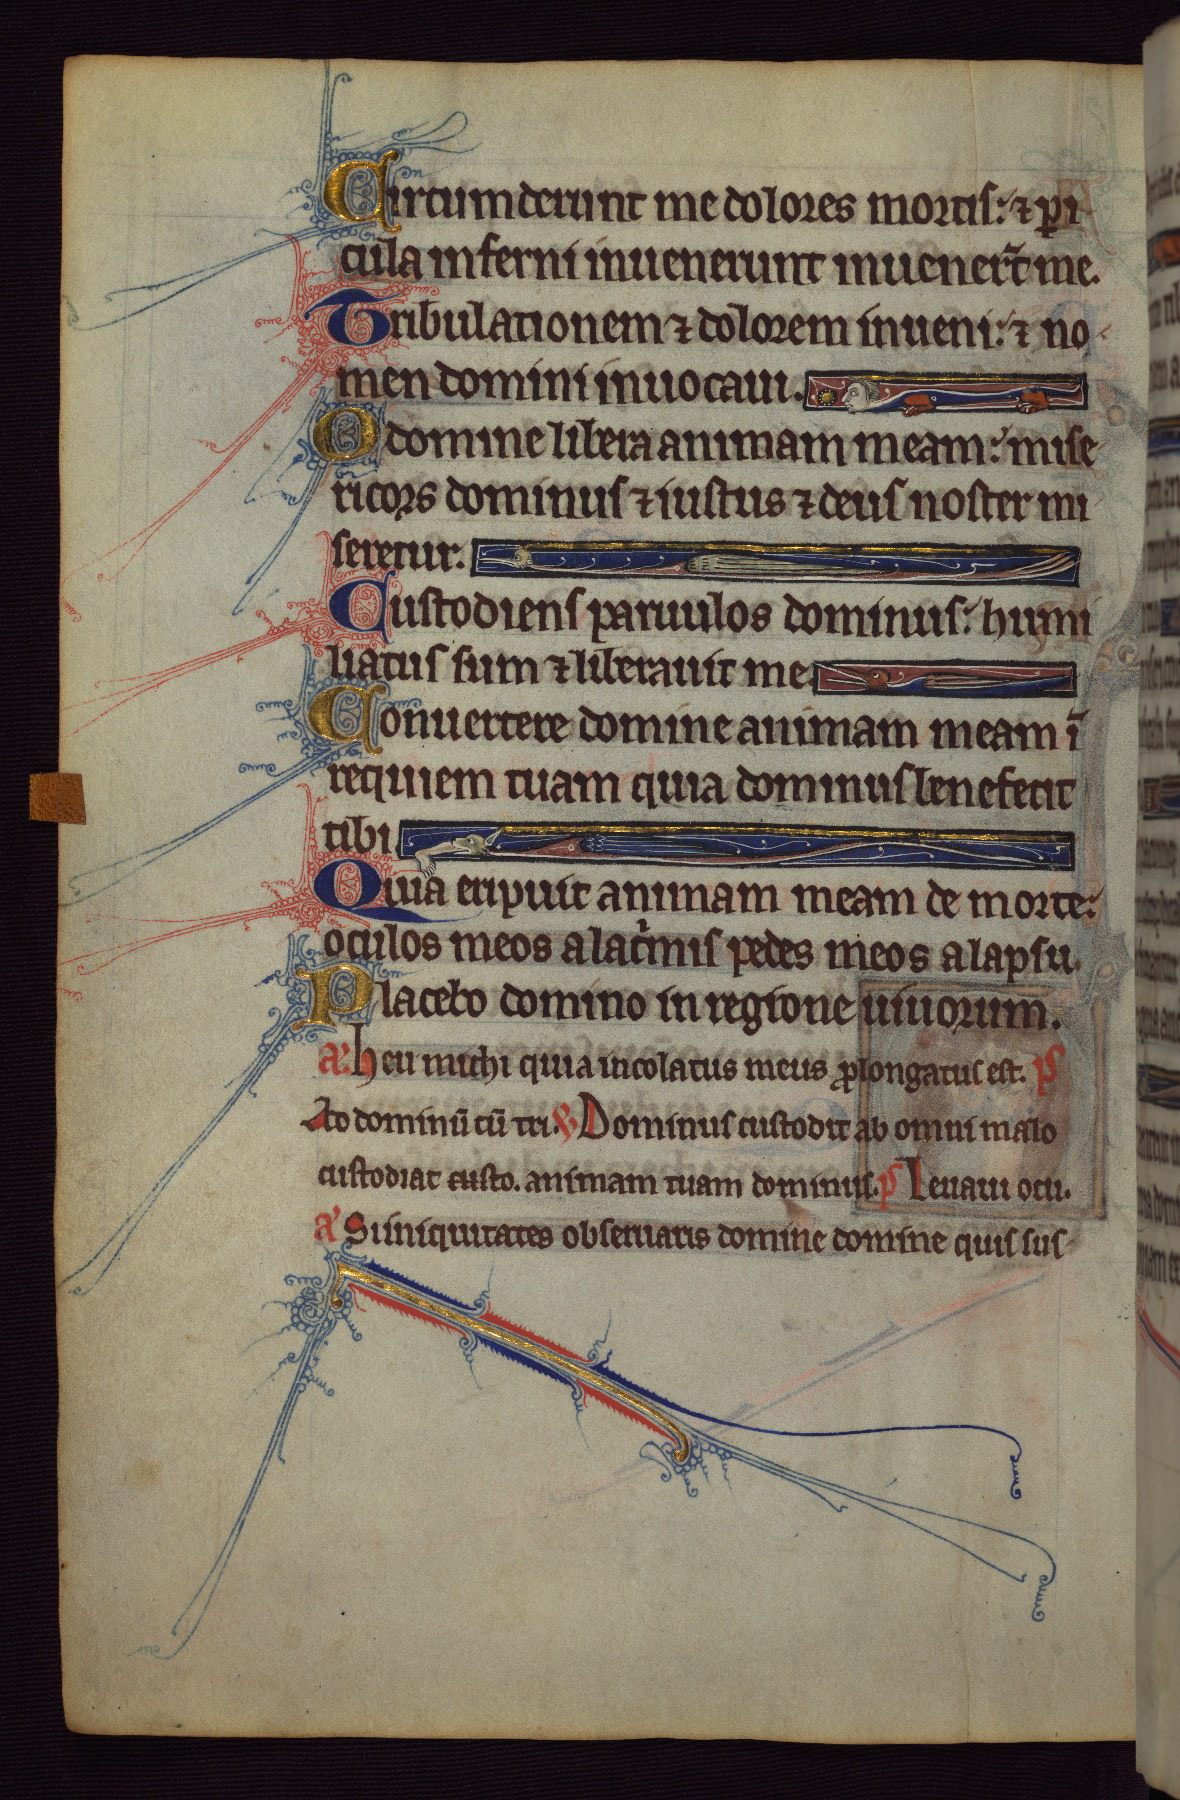 Circumderunt me dolores mortis: ⁊ ꝑi
cula inferni inuenerunt inuener̃t me.
Tribulationem ⁊ dolorem inueni: ⁊ no
men domini inuocaui.
O domine libera animam meam: mise
ricors dominus ⁊ iustus ⁊ deus noster mi
seretur.
Custodiens paruulos dominus: humi
liatus sum ⁊ liberauit me.
Conuertere domine animam meam ĩ
requiem tuam quia dominus benefecit
tibi
Quia eripuit animam meam de morte:
oculos meos a lac̍mis pedes meos a lapsu.
Placebo domino in regione uiuorum.
a᷎. Heu michi quia incolatus meus ꝓlongatus est. p̃s
Ad dominũ cũ tri. ℣ Dominus custodit ab omni malo
custodiat custo. animam tuam dominus. p̃s Leuaui ocu.
a᷎ Si iniquitates obseruaris domine domine quis sus